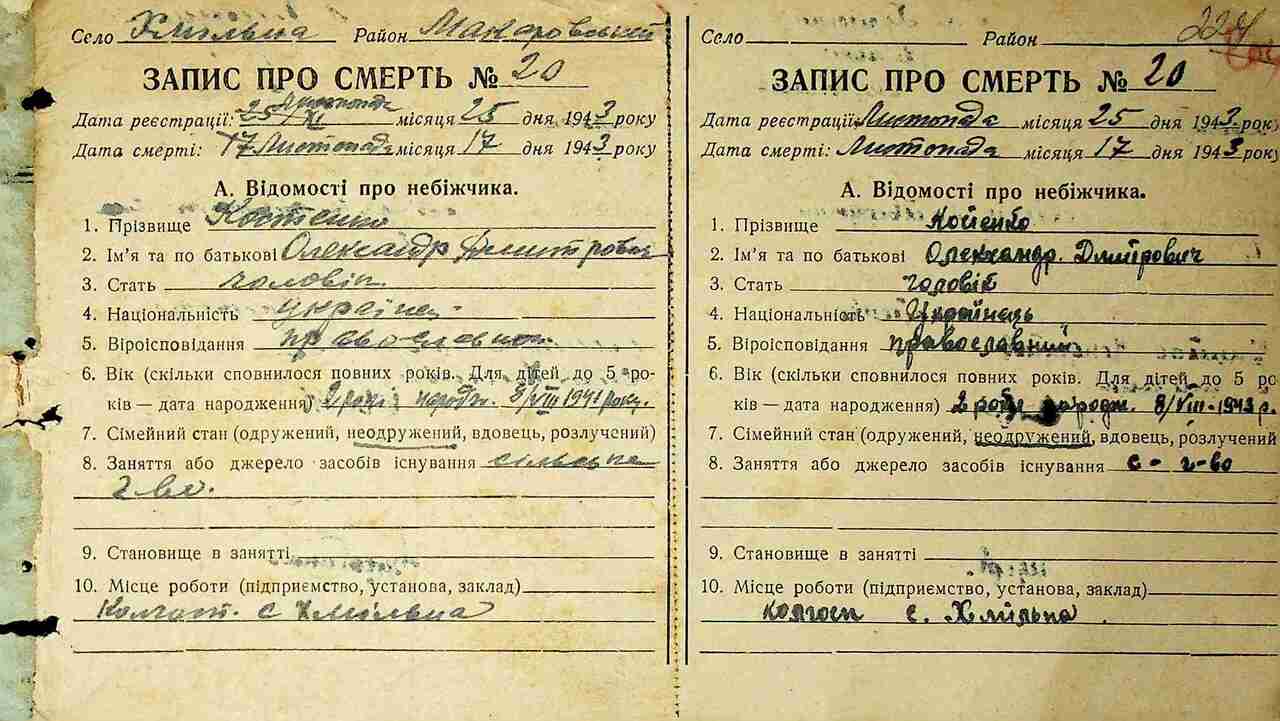 Село Хмільна Район Макаровський
ЗАПИС ПРО СМЕРТЬ № 20
Дата реєстрації: 25 листопада XI місяця 25 дня 1943 року
Дата смерті: 17 Листопада місяця 17 дня 1943 року
А. Відомості про небіжчика.
1. Прізвище
2. Ім'я та по батькові Олександр Дмитрович
3. Стать чоловік
4. Національність україн.
5. Віроісповідання православн.
6. Вік (скільки сповнилося повних років. Для дітей до 5 ро-
ків — дата народження) 2 роки народж. 8/VIII 1941 року.
7. Сімейний стан (одружений, неодружений, вдовець, розлучений)
8. Заняття або джерело засобів існування сільське
г-во.
9. Становище в занятті
10. Місце роботи (підприємство, установа, заклад)
с Хмільна
224
Село Район
ЗАПИС ПРО СМЕРТЬ № 20
Дата реєстрації: Листопада місяця 25 дня 1943 року
Дата смерті: Листопада місяця 17 дня 1943 року
А. Відомості про небіжчика.
1. Прізвище
2. Ім'я та по батькові Олександр Дмитрович
3. Стать чоловік
4. Національність Українець
5. Віроісповідання православний
6. Вік (скільки сповнилося повних років. Для дітей до 5 ро-
ків — дата народження) 2 роки народж. 8/VIII-1943 р.
7. Сімейний стан (одружений, неодружений, вдовець, розлучений
8. Заняття або джерело засобів існування с-г-во
9. Становище в занятті
10. Місце роботи (підприємство, установа, заклад)
колгосп с. Хмільна.